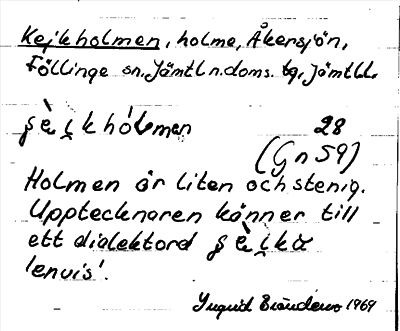 Kejkholmen, holme, Åkersjön,
Föllinge sn, Jämtl. n. doms. tg, Jämtl.l.
28
(Gn 59)
Holmen är liten och stenig.
Upptecknaren känner till
ett dialektord
'envis'.
Ingrid 1969